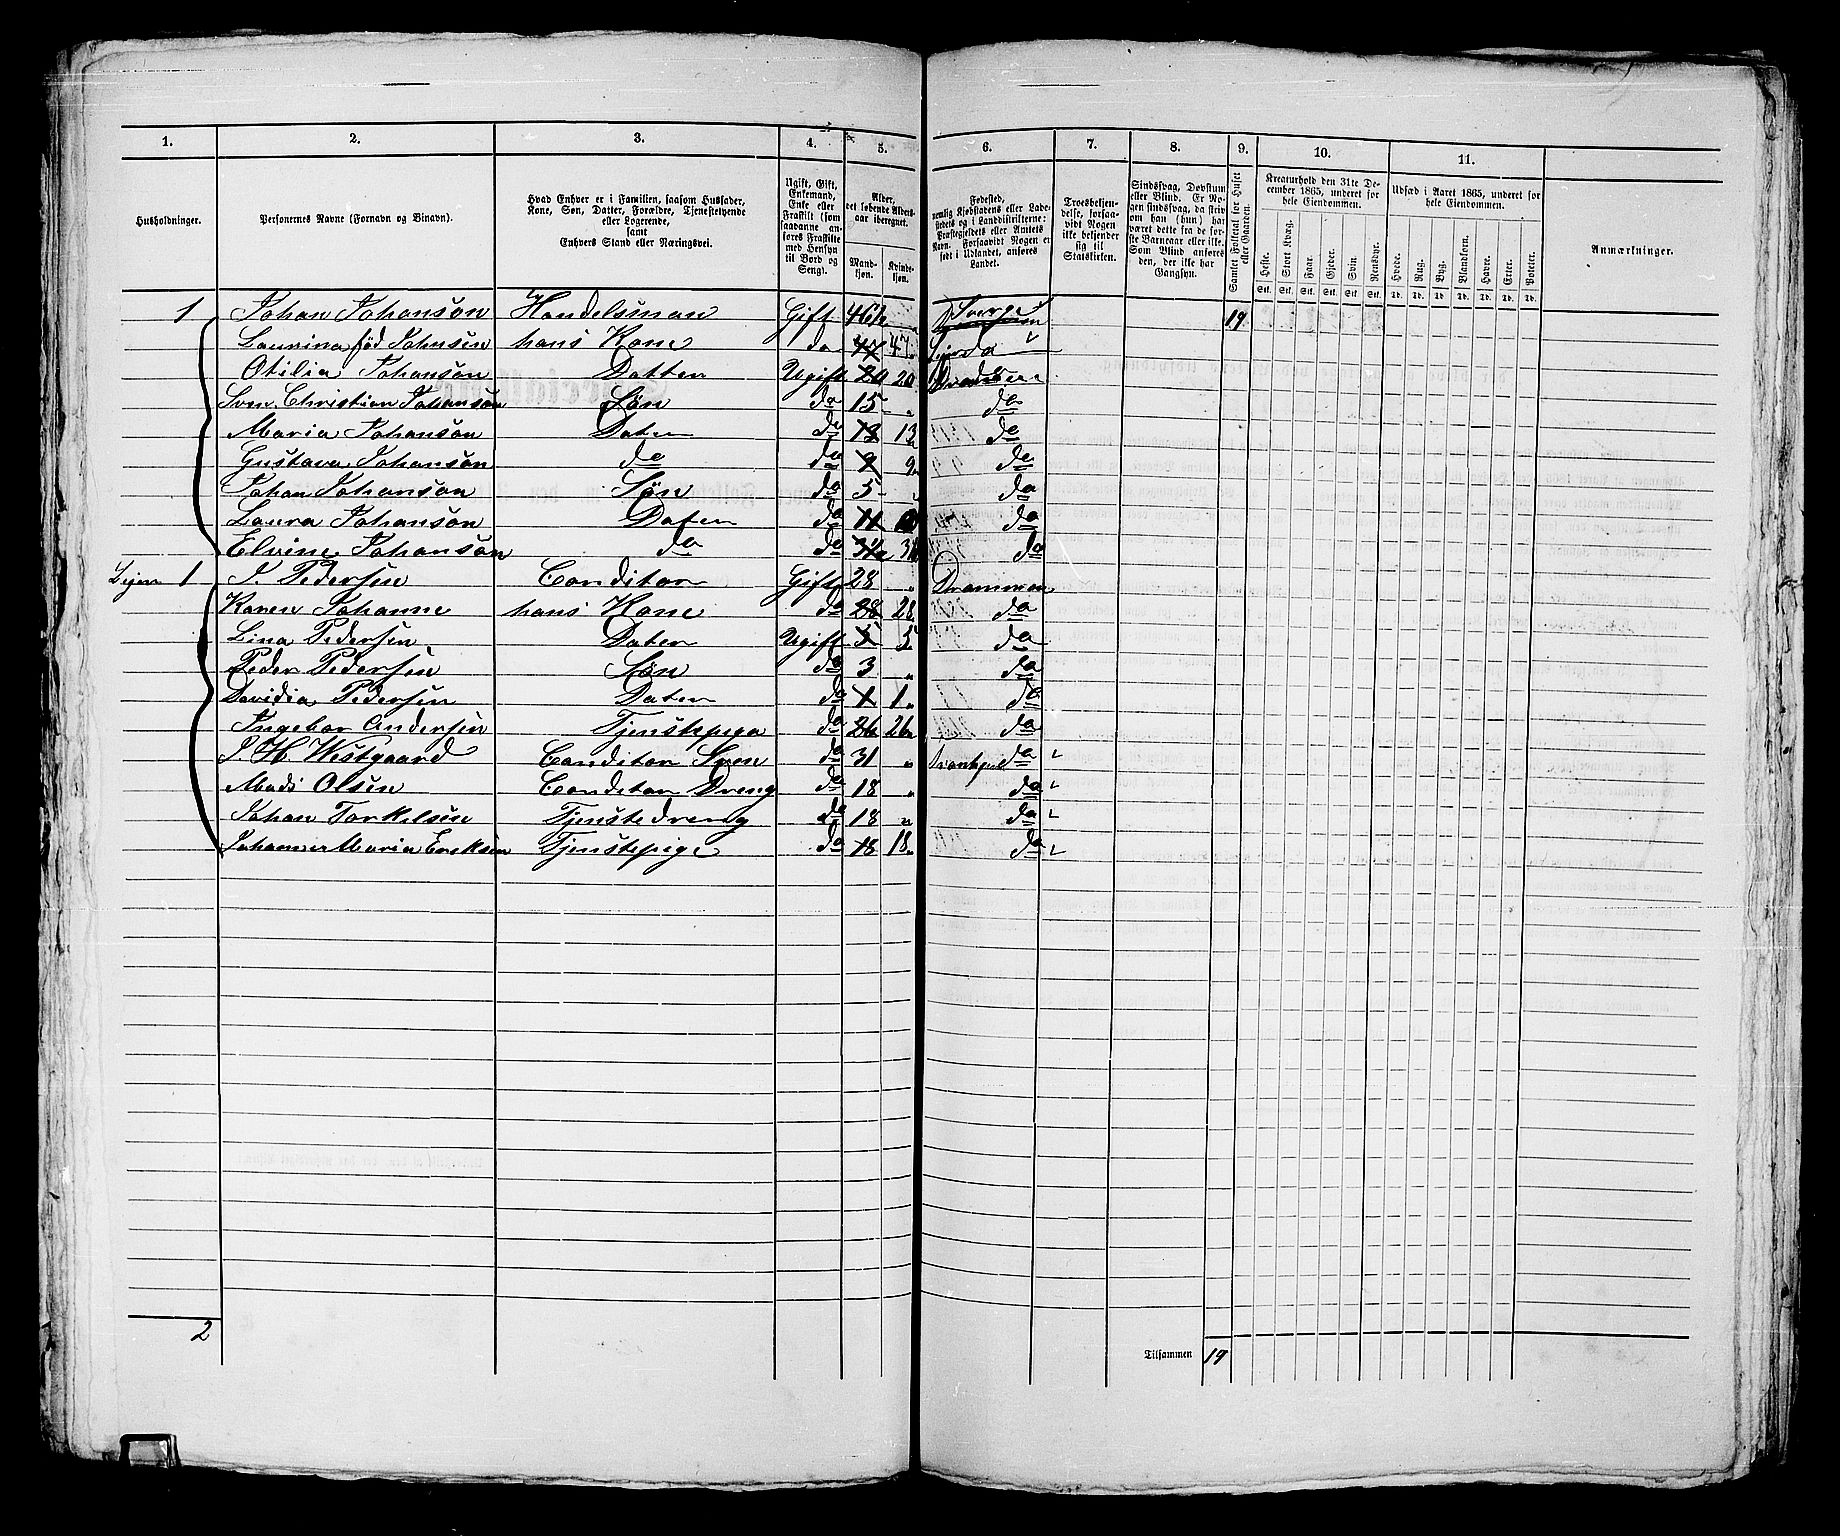 1. 2. 3. 4. 5. 6. 7. 8. 9. 10. 11.
Husholdninger.
Personernes Navne (Fornavn og Binavn).
Hvad Enhver er i Familien, saasom Husfader,
Kone, Søn, Datter, Forældre, Tjenestetyende
eller Logerende,
samt
Enhvers Stand eller Næringsvei.
Ugift, Gift,
Enkemand,
Enke eller
Fraskilt (som
saadanne an-
føres Fraskilte
med Hensyn
til Bord og
Seng).
Alder,
det løbende Alders-
aar iberegnet.
Mand-
kjøn.
Kvinde-
kjøn.
Fødested,
nemlig Kjøbstadens eller Lade-
stedets og i Landdistrikterne:
Præstegjeldets eller Amtets
Navn. Forsaavidt Nogen er
født i Udlandet, anføres
Landet.
Troesbekjen-
delse, forsaa-
vidt Nogen
ikke bekjender
sig til
Statskirken.
Sindssvag, Døvstum
eller Blind. Er No-
gen sindssvag, da skriv
om han (hun) har
været dette fra de før-
ste Barneaar eller ikke.
Som Blind anføres
den, der ikke har
Gangsyn.
Samlet Folketal for Huset
eller Gaarden.
Kreaturhold den 31te De-
cember 1865, underet for
hele Eiendommen.
Heste. Stort Kvæg. Faar. Gjeder. Svin. Rensdyr.
Stk. Stk. Stk. Stk. Stk. Stk.
Udsæd i Aaret 1865, underet for
hele Eiendommen.
Hvede. Rug. Byg. Blandkorn. Havre. Erter. Poteter.
Td. Td. Td. Td. Td. Td. Td.
Anmærkninger.
1 Johan Johanson Handelsman Gift 46 Sverge 19
Laurina fød Johnsen hans Kone do 47 47 da
Otilia Johanson Datter Ugift 20 20
Sven Christian Johanson Søn da 15 " da
Maria Johanson Dater da 13 13 da
Gustava Johanson da da 9 9 da
Johan Johanson Søn da 5 " da
Laura Johanson Dater da 11 da
Elvine Johanson da da da
Lejer 1 J. Pedersen Conditor Gift 28 " Drammen
Karen Johanne hans Kone da 28 28 da
Lina Pedersen Dater Ugift 5 5 da
Peder Pedersen Søn da 3 " da
Davidia Pedersen Dater da 1 1 da
Ingebor Andersen Tjenstepiga da 26 26 da
J. H. Westgaard Conditor Sven da 31 " da
Mads Olsen Conditor Dreng da 18 " da
Johan Torkelsen Tjenstedreng da 18 " da
Johanne Maria Eriksen Tjenstepige da 18 18 da
2
Tilsammen 19